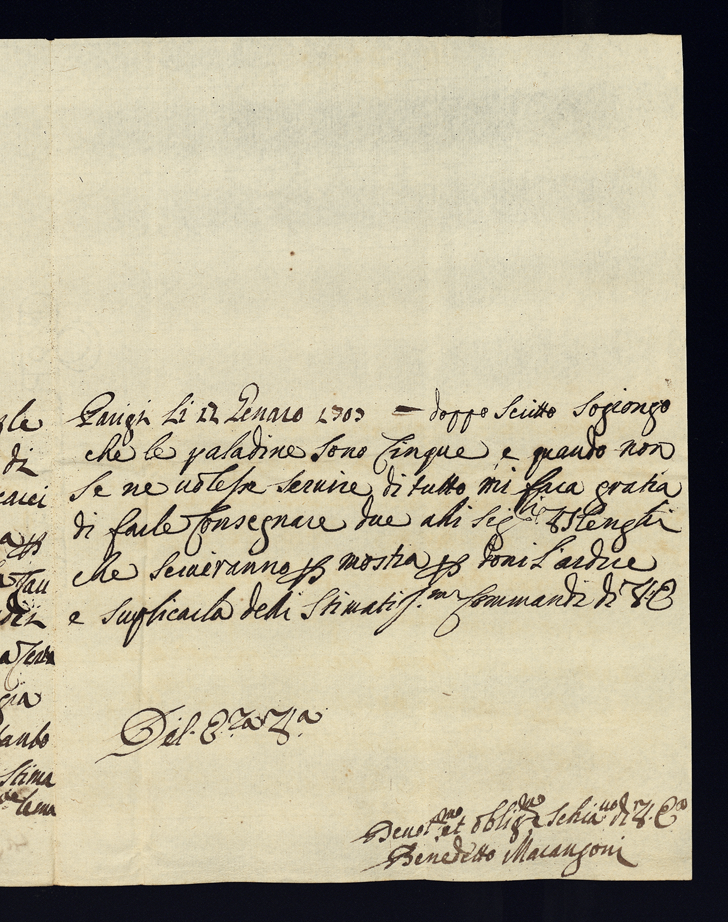 Parigi Li 12 Genaro 1703 — doppo Scritto Sogiongo
che le paladine sono Cinque e quando non
se ne volesse servire di tutto mi facci gratia
di farle Consegnare due alli Sig.ri
che serviranno per mostra per doni L'ardire
e suplicarla delli Stimatiss.mi Commandi di V.E
Del. E.za V.a
Devot.mo et oblig.mo Schiavo di V.E.
Benedetto Macangoni
gle
di
a per
gia
Stima